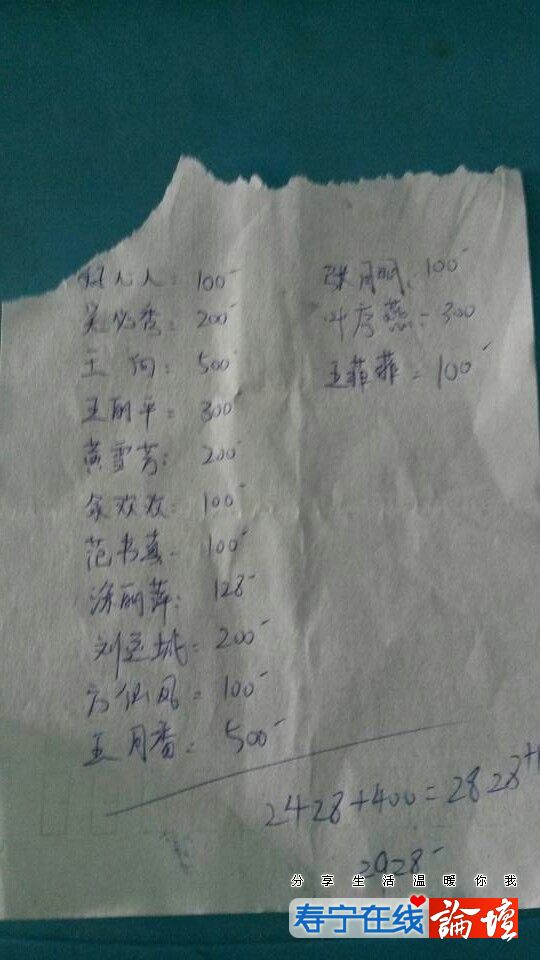 好心人：100-
吴必秀：200-
王向：500-
王丽平=300-
黄雪芳：200-
余欢欢=100-
范书真-100-
涂丽萍：128-
刘=200-
方仙凤=100-
王月香：500-
张丽明：100-
叶序燕=300
王菲菲=100-
2428+400=2828+1
2928-
分享生活温暖你我
寿宁在线論壇